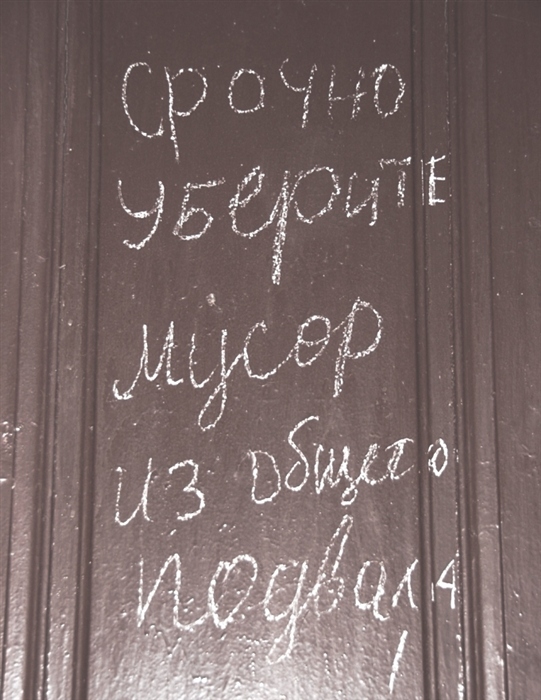 срочно
уберите
мусор
из общего
подвала